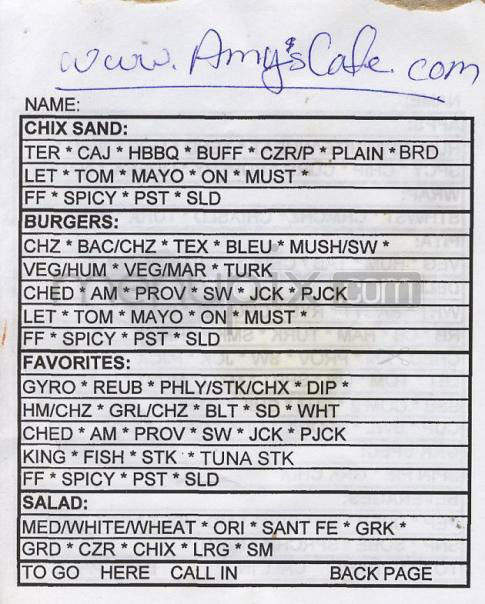 www.Amy'sCafe.com
NAME:
CHIX SAND:
TER * CAJ * HBBQ * BUFF * CZR/P * PLAIN * BRD
LET * TOM * MAYO * ON * MUST *
FF * SPICY * PST * SLD
BURGERS:
CHZ * BAC/CHZ * TEX * BLEU * MUSH/SW *
VEG/HUM * VEG/MAR * TURK
CHED * AM * PROV * SW * JCK * PJCK
LET * TOM * MAYO * ON * MUST *
FF * SPICY * PST * SLD
FAVORITES:
GYRO * REUB * PHLY/STK/CHX * DIP *
HM/CHZ * GRL/CHZ * BLT * SD * WHT
CHED * AM * PROV * SW * JCK * PJCK
KING * FISH * STK * TUNA STK
FF * SPICY * PST * SLD
SALAD:
MED/WHITE/WHEAT * ORI * SANT FE * GRK *
GRD * CZR * CHIX * LRG * SM
TO GO HERE CALL IN BACK PAGE